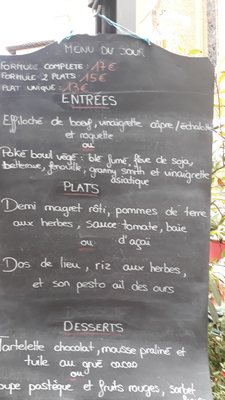 MENU DU JOUR
FORMULE COMPLETE : 17€
FORMULE 2 PLATS : 15€
PLAT UNIQUE : 13€
ENTRÉES
Effiloché de bœuf, vinaigrette câpre/échalotte
et roquette
ou
Poké bowl végé : blé fumé, fève de soja,
betterave, fenouille, granny smith et vinaigrette
asiatique
PLATS
Demi magret rôti, pommes de terre
aux herbes, sauce tomate, baie
ou d'açai
Dos de lieu, riz aux herbes,
et son pesto ail des ours
DESSERTS
Tartelette chocolat, mousse praliné et
tuile au grué cacao
ou
Soupe pastèque et fruits rouges, sorbet